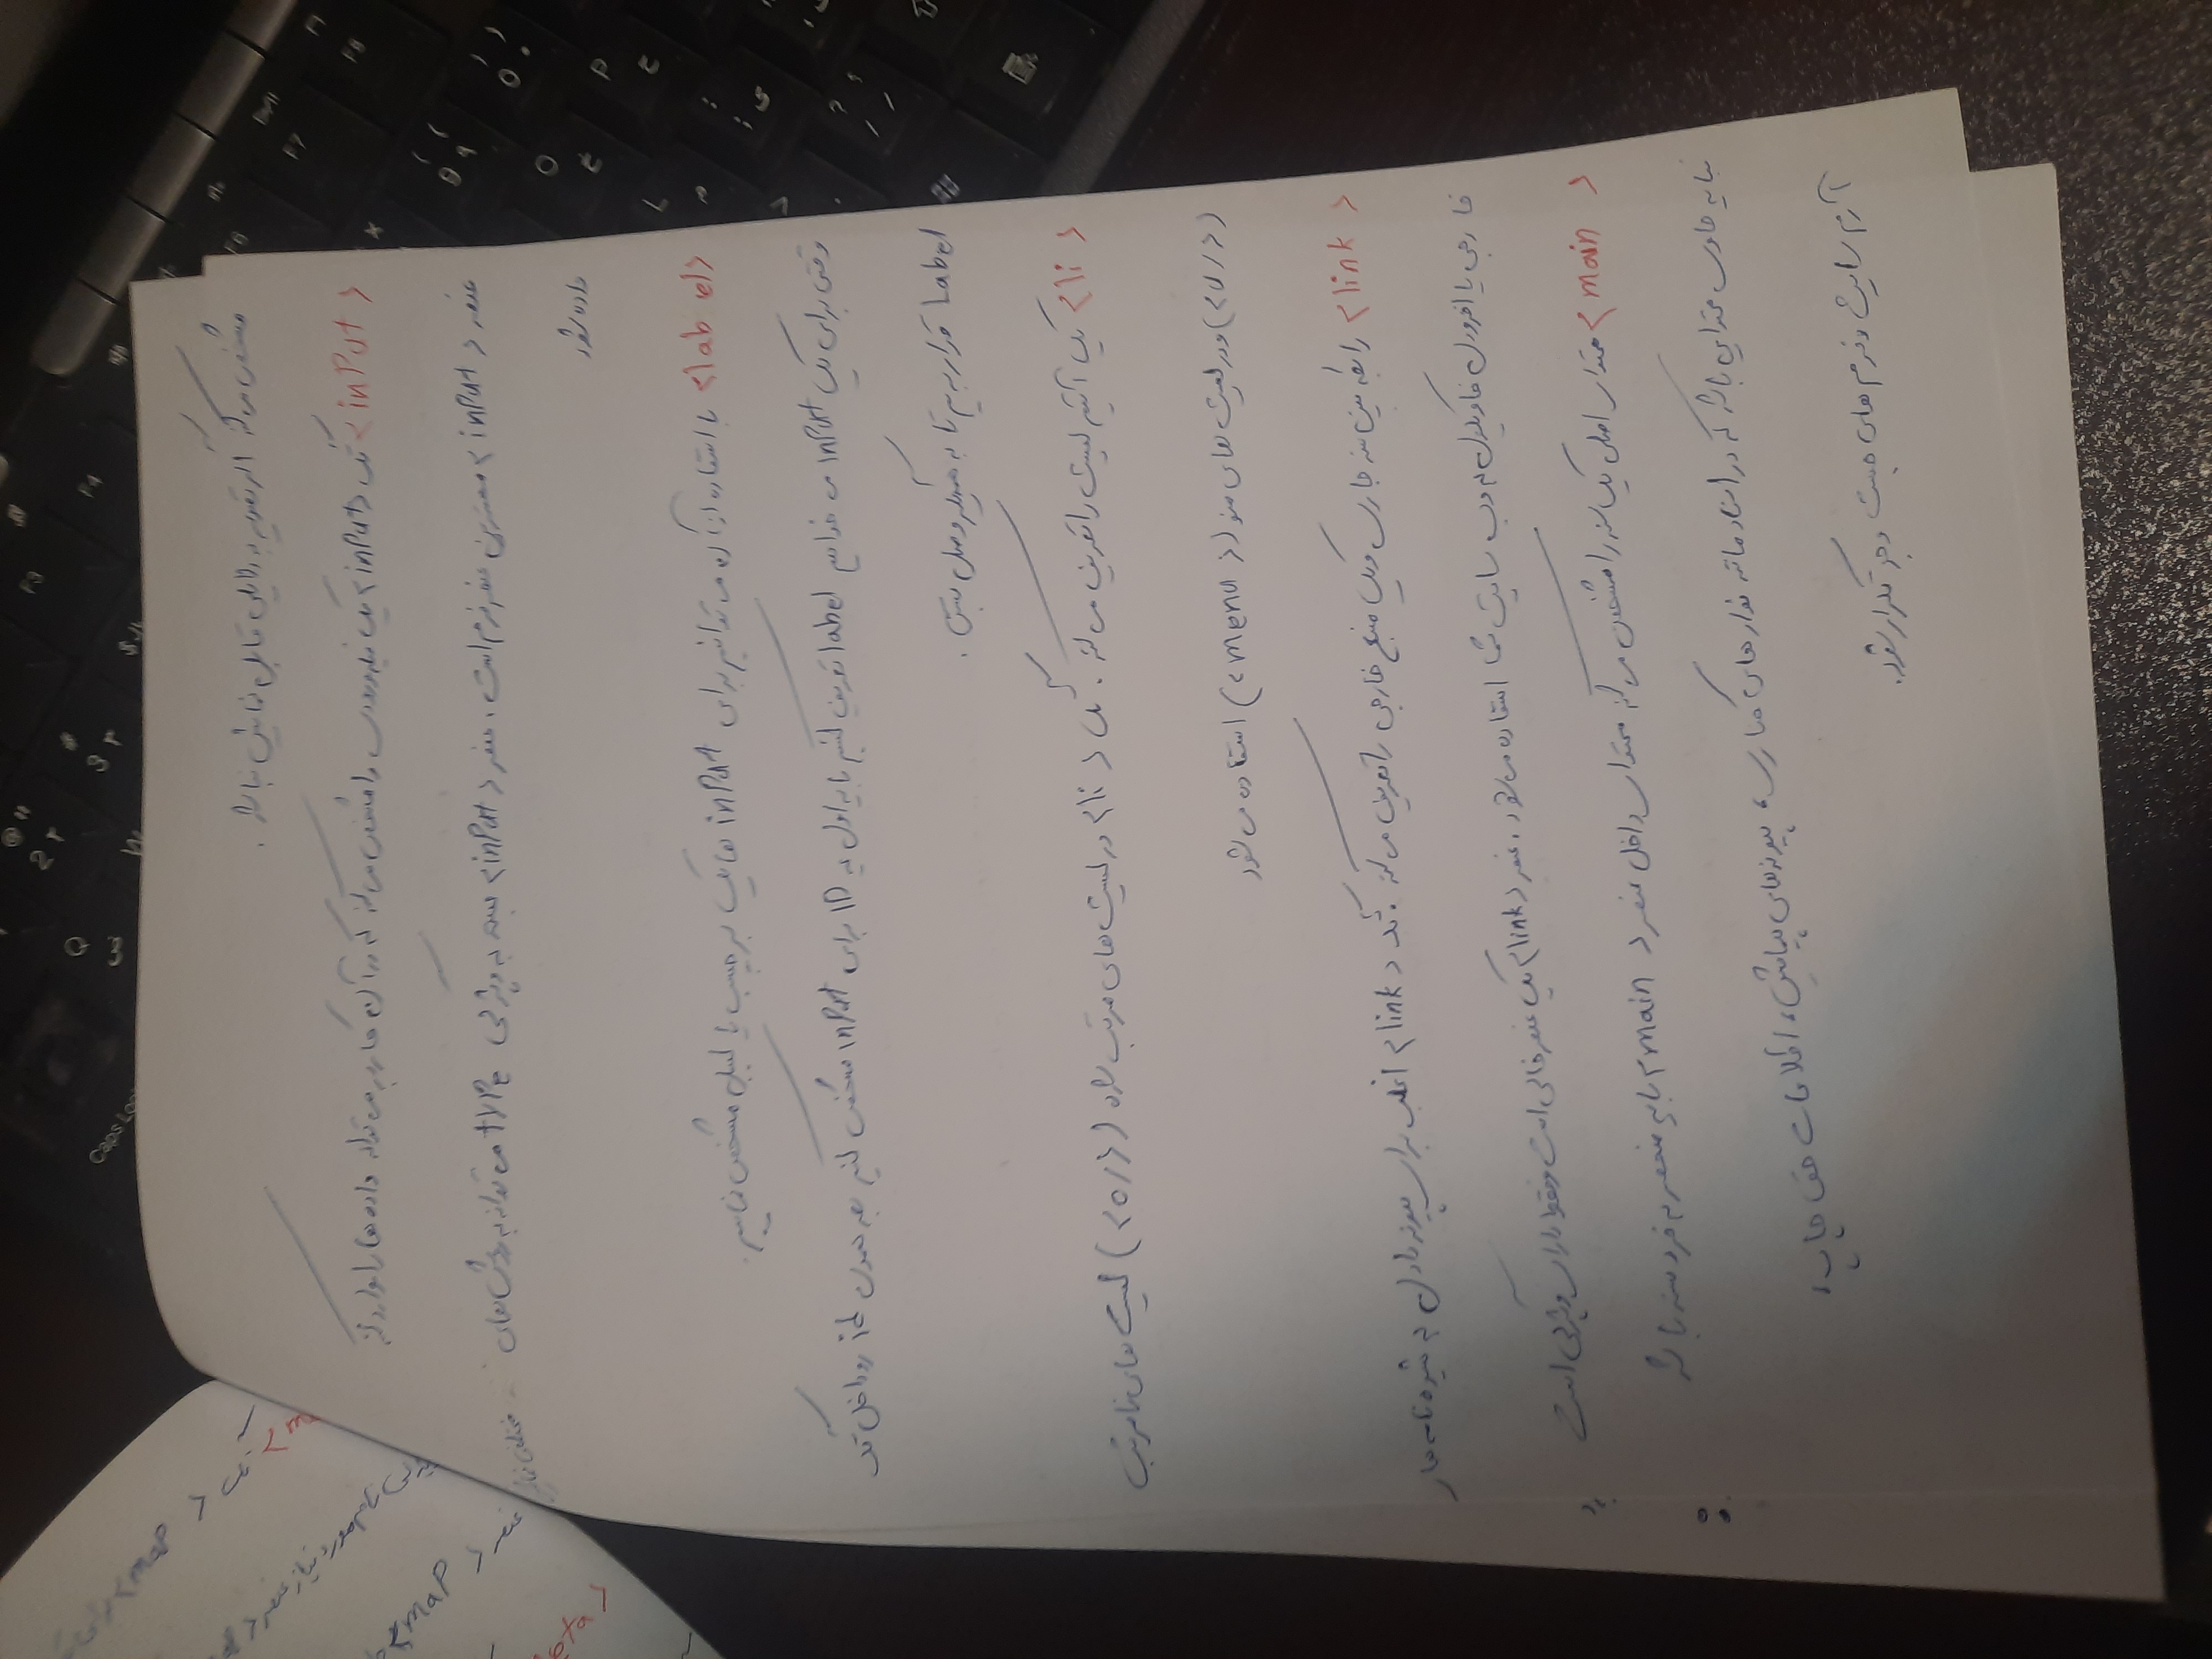 مشخص می‌کند اگر تصویر به دلایلی قابل نمایش نباشد .
<input> تگ <input> یک فیلد ورودی را مشخص می‌کند که در آن کاربر می‌تواند داده ها را وارد کند
عنصر <input> مهمترین عنصر فرم است . عنصر <input> بسته به ویژگی type می‌تواند به روش های مختلفی نمایش
داده شود
<label> با استفاده از آن می توانیم برای input ها یک برچسب یا لیبل مشخص نماییم .
وقتی برای یک input می خواهیم label تعریف کنیم باید اول یه ID برای input مشخص کنیم بعد همون id رو داخل تگ
Label قرار بدیم تا به همدیگه وصل بشن .
<li> یک آیتم لیست را تعریف می کند . تگ <li> در لیست های مرتب شده (<o/>) لیست های نامرتب
(<u/>) و در لیست های منو (<menu>) استفاده می شود
<link> رابطه بین سند جاری و یک منبع خارجی را تعریف می کند . تگ <link> اغلب برای پیوند دادن به شیوه نامه های
خارجی یا افزودن فاویکون به وب سایت شما استفاده می شود . عنصر <link> یک عنصر خالی است و فقط دارای ویژگی است
<main> محتوای اصلی یک سند را مشخص می کند محتوای داخل عنصر <main> باید منحصر به فرد سند باشد
نباید حاوی محتوایی باشد که در اسناد مانند نوارهای کناری ، پیوندهای پیمایش ، اطلاعات حق چاپ ،
آرم سایت و فرم های جست و جو تکرار شود .